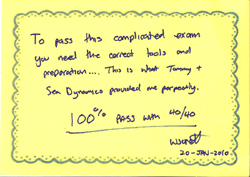 To pass this complicated exam
you need the correct tools and
preparation.... This is what Tammy +
Sea Dynamics provided me perfectly.
100% PASS WITH 40/40
20-JAN-2010